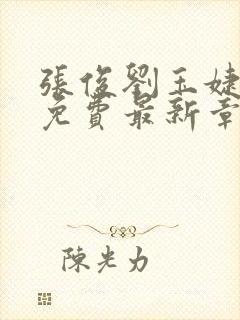 張俊劉玉婕
免費最新章
陳光力